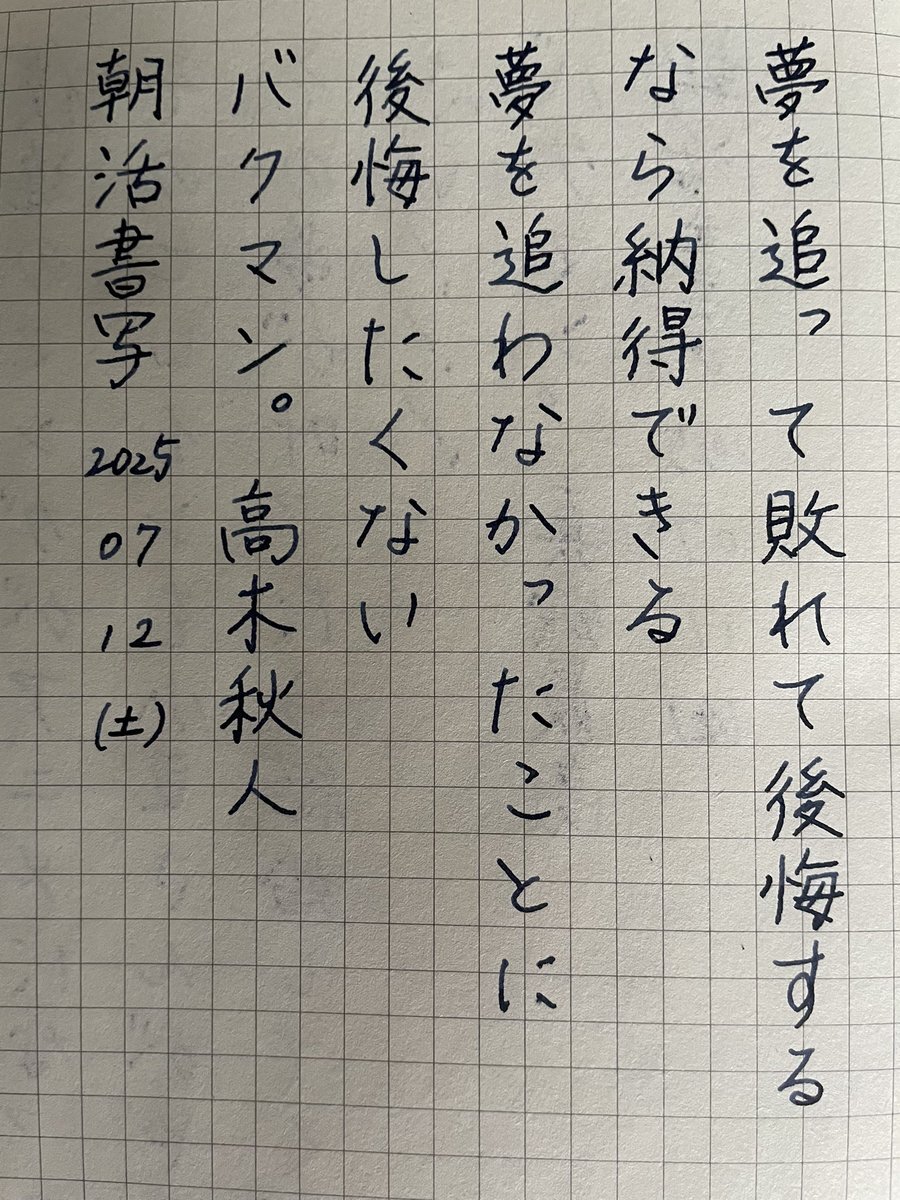 夢を追って敗れて後悔する
なら納得できる
夢を追わなかったことに
後悔したくない
バクマン。 高木秋人
朝活書写 2025 07 12 (土)